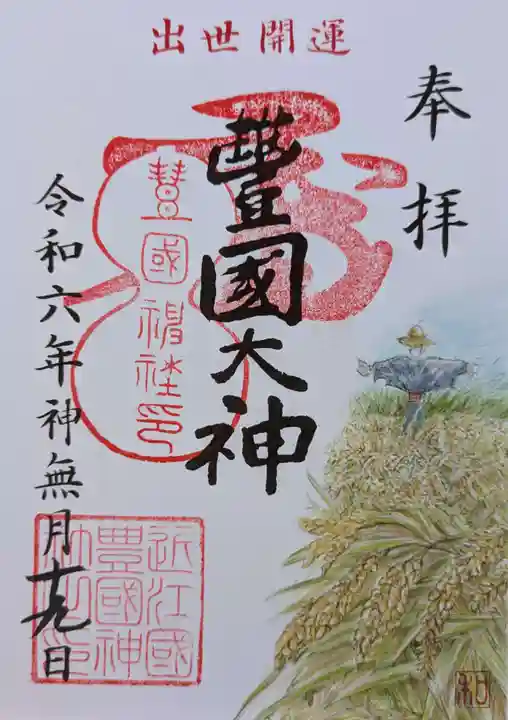 出世開運
奉拝
豐國大神
豐國神社印
令和六年神無月十九日
近江國
豊國神
社之印
和